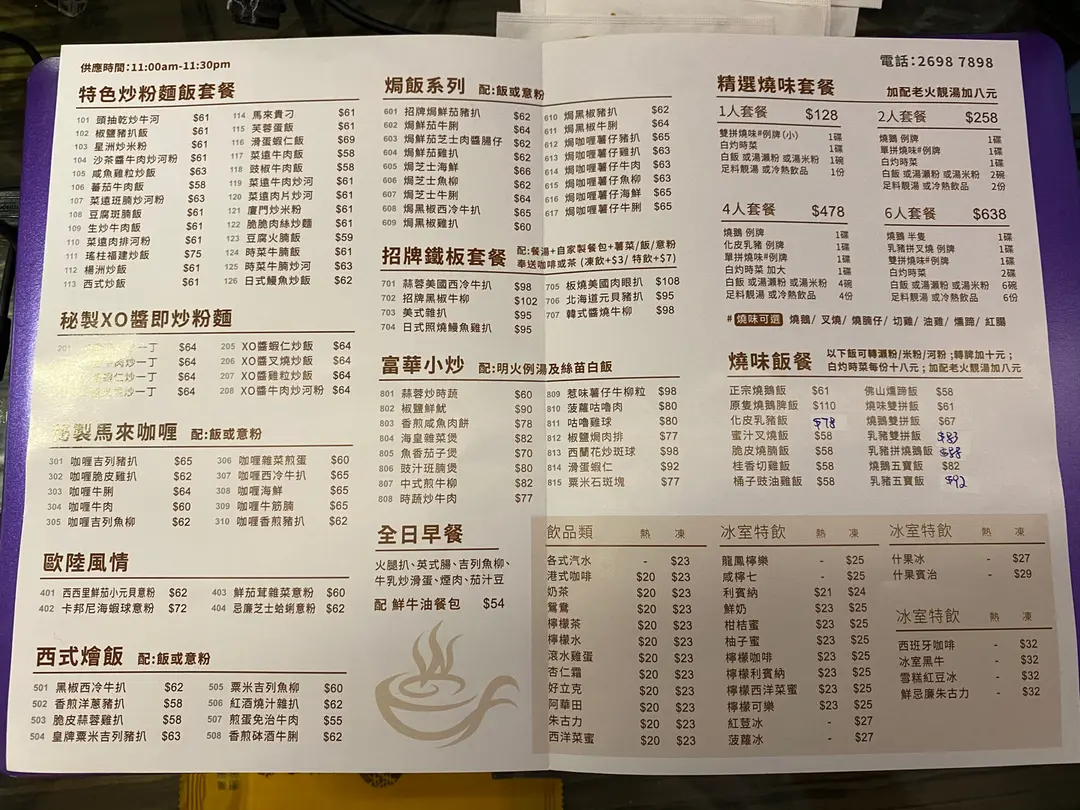 供應時間:11:00am-11:30pm
特色炒粉麵飯套餐
101 頭抽乾炒牛河 $61
102 椒鹽豬扒飯 $61
103 星洲炒米粉 $61
104 沙茶醬牛肉炒河粉 $61
105 咸魚雞粒炒飯 $63
106 蕃茄牛肉飯 $58
107 菜遠班腩炒河粉 $63
108 豆腐斑腩飯 $61
109 生炒牛肉飯 $61
110 菜遠肉排河粉 $61
111 瑤柱福建炒飯 $75
112 楊洲炒飯 $61
113 西式炒飯 $61
114 馬來貴刁 $61
115 芙蓉蛋飯 $61
116 滑蛋蝦仁飯 $69
117 菜遠牛肉飯 $58
118 豉椒牛肉飯 $58
119 菜遠牛肉炒河 $61
120 菜遠肉片炒河 $61
121 廈門炒米粉 $61
122 脆脆肉絲炒麵 $61
123 豆腐火腩飯 $59
124 時菜牛腩飯 $61
125 時菜牛腩炒河 $63
126 日式鰻魚炒飯 $62
秘製XO醬即炒粉麵
201 一丁 $64
牛肉炒一丁 $64
蝦仁炒一丁 $64
炒一丁 $64
205 XO醬蝦仁炒飯 $64
206 XO醬叉燒炒飯 $64
207 XO醬雞粒炒飯 $64
208 XO醬牛肉炒河粉 $64
秘製馬來咖喱 配:飯或意粉
301 咖喱吉列豬扒 $65
302 咖喱脆皮雞扒 $62
303 咖喱牛脷 $64
304 咖喱牛肉 $60
305 咖喱吉列魚柳 $62
306 咖喱雜菜煎蛋 $60
307 咖喱西冷牛扒 $65
308 咖喱海鮮 $65
309 咖喱牛筋腩 $65
310 咖喱香煎豬扒 $62
歐陸風情
401 西西里鮮茄小元貝意粉 $62
402 卡邦尼海蝦球意粉 $72
403 鮮茄茸雜菜意粉 $60
404 忌廉芝士蛤蜊意粉 $62
西式燴飯 配:飯或意粉
501 黑椒西冷牛扒 $62
502 香煎洋蔥豬扒 $58
503 脆皮蒜蓉雞扒 $58
504 皇牌粟米吉列豬扒 $63
505 粟米吉列魚柳 $60
506 紅酒燒汁雜扒 $62
507 煎蛋免治牛肉 $55
508 香煎砵酒牛脷 $62
焗飯系列 配:飯或意粉
601 招牌焗鮮茄豬扒 $62
602 焗鮮茄牛脷 $64
603 焗鮮茄芝士肉醬腸仔 $62
604 焗鮮茄雞扒 $62
605 焗芝士海鮮 $66
606 焗芝士魚柳 $62
607 焗芝士牛脷 $64
608 焗黑椒西冷牛扒 $65
609 焗黑椒雞扒 $60
610 焗黑椒豬扒 $62
611 焗黑椒牛脷 $64
612 焗咖喱薯仔豬扒 $65
613 焗咖喱薯仔雞扒 $63
614 焗咖喱薯仔牛肉 $63
615 焗咖喱薯仔魚柳 $63
616 焗咖喱薯仔海鮮 $65
617 焗咖喱薯仔牛脷 $65
招牌鐵板套餐 配:餐湯+自家製餐包+薯菜/飯/意粉
奉送咖啡或茶 (凍飲+$3/ 特飲+$7)
701 蒜蓉美國西冷牛扒 $98
702 招牌黑椒牛柳 $102
703 美式雜扒 $95
704 日式照燒鰻魚雞扒 $95
705 板燒美國肉眼扒 $108
706 北海道元貝豬扒 $95
707 韓式醬燒牛柳 $98
富華小炒 配:明火例湯及絲苗白飯
801 蒜蓉炒時蔬 $60
802 椒鹽鮮魷 $90
803 香煎咸魚肉餅 $78
804 海皇雜菜煲 $82
805 魚香茄子煲 $70
806 豉汁斑腩煲 $80
807 中式煎牛柳 $82
808 時蔬炒牛肉 $77
809 惹味薯仔牛柳粒 $98
810 菠蘿咕嚕肉 $80
811 咕嚕雞球 $80
812 椒鹽焗肉排 $77
813 西蘭花炒斑球 $98
814 滑蛋蝦仁 $92
815 粟米石斑塊 $77
全日早餐
火腿扒、英式腸、吉列魚柳、
牛乳炒滑蛋、煙肉、茄汁豆
配 鮮牛油餐包 $54
電話:2698 7898
精選燒味套餐 加配老火靚湯加八元
1人套餐 $128
雙拼燒味#例牌(小) 1碟
白灼時菜 1碟
白飯 或湯瀨粉 或湯米粉 1碗
足料靚湯 或冷熱飲品 1份
2人套餐 $258
燒鵝 例牌 1碟
單拼燒味#例牌 1碟
白灼時菜 1碟
白飯 或湯瀨粉 或湯米粉 2碗
足料靚湯 或冷熱飲品 2份
4人套餐 $478
燒鵝 例牌 1碟
化皮乳豬 例牌 1碟
單拼燒味#例牌 1碟
白灼時菜 加大 1碟
白飯 或湯瀨粉 或湯米粉 4碗
足料靚湯 或冷熱飲品 4份
6人套餐 $638
燒鵝 半隻 1碟
乳豬拼叉燒 例牌 1碟
雙拼燒味#例牌 1碟
白灼時菜 2碟
白飯 或湯瀨粉 或湯米粉 6碗
足料靚湯 或冷熱飲品 6份
# 燒味可選 燒鵝/ 叉燒/ 燒腩仔/ 切雞/ 油雞/ 燻蹄/ 紅腸
燒味飯餐 以下飯可轉瀨粉/米粉/河粉;轉脾加十元;
白灼時菜每份十八元;加配老火靚湯加八元
正宗燒鵝飯 $61
原隻燒鵝脾飯 $110
化皮乳豬飯 $78
蜜汁叉燒飯 $58
脆皮燒腩飯 $58
桂香切雞飯 $58
桶子豉油雞飯 $58
佛山燻蹄飯 $58
燒味雙拼飯 $61
燒鵝雙拼飯 $67
乳豬雙拼飯 $83
乳豬拼燒鵝飯 $88
燒鵝五寶飯 $82
乳豬五寶飯 $92
飲品類 熱 凍
各式汽水 - $23
港式咖啡 $20 $23
奶茶 $20 $23
鴛鴦 $20 $23
檸檬茶 $20 $23
檸檬水 $20 $23
滾水雞蛋 $20 $23
杏仁霜 $20 $23
好立克 $20 $23
阿華田 $20 $23
朱古力 $20 $23
西洋菜蜜 $20 $23
冰室特飲 熱 凍
龍鳳檸樂 - $25
咸檸七 - $25
利賓納 $21 $24
鮮奶 $23 $25
柑桔蜜 $23 $25
柚子蜜 $23 $25
檸檬咖啡 $23 $25
檸檬利賓納 $23 $25
檸檬西洋菜蜜 $23 $25
檸檬可樂 $23 $25
紅荳冰 - $27
菠蘿冰 - $27
冰室特飲 熱 凍
什果冰 - $27
什果賓治 - $29
冰室特飲 熱 凍
西班牙咖啡 - $32
冰室黑牛 - $32
雪糕紅豆冰 - $32
鮮忌廉朱古力 - $32